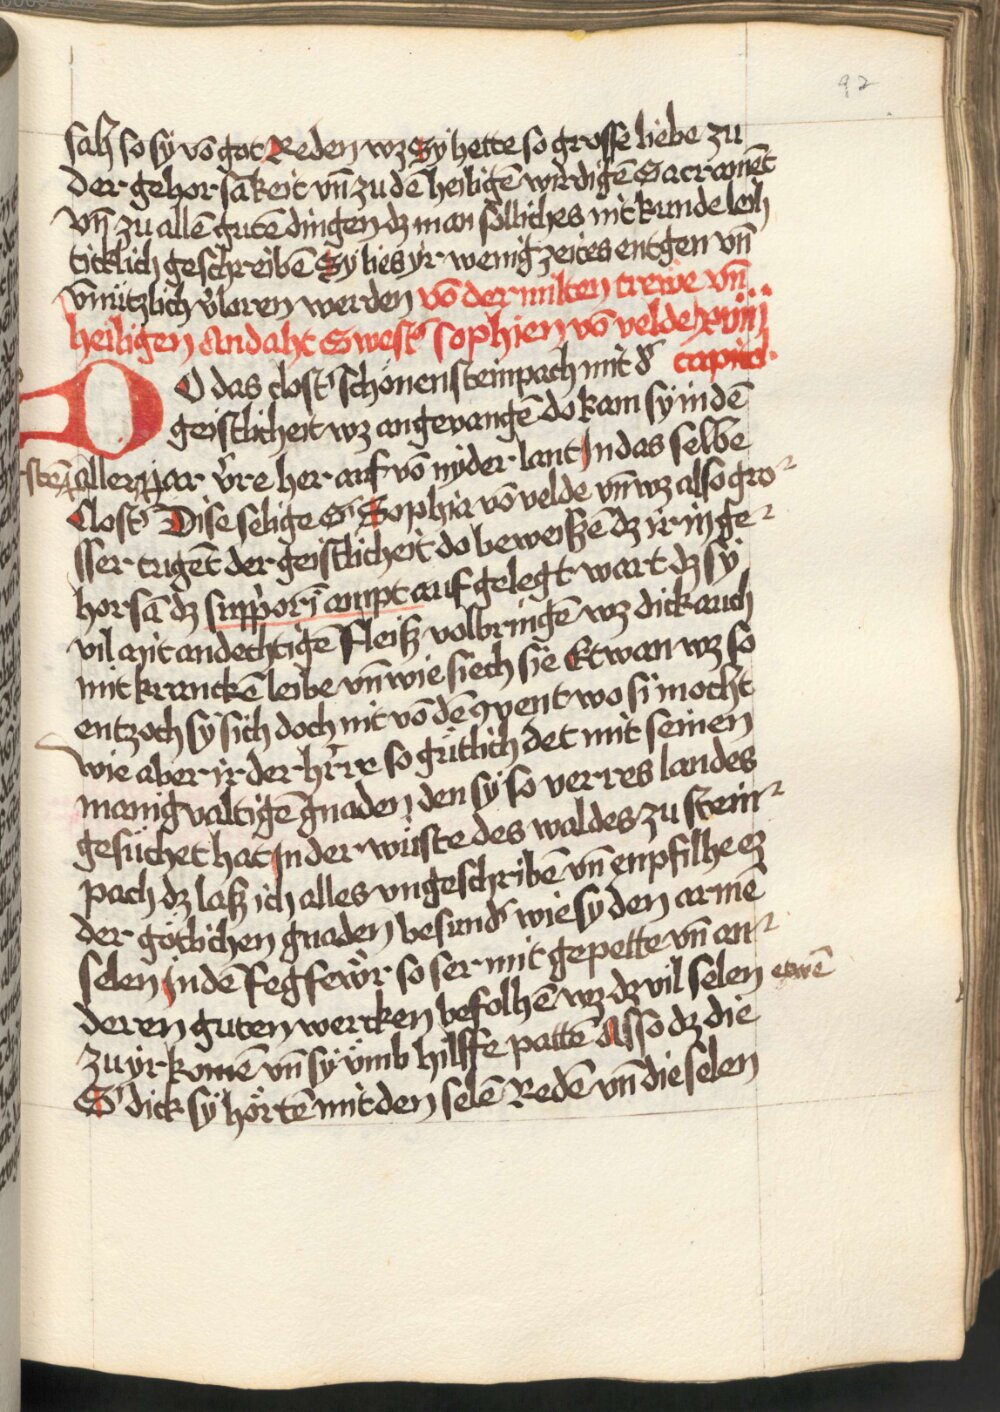 92
sah so sÿ võ got Reden wz Sÿ hette so grosse liebe zu
der gehorsãkeit vñ zu dẽ heiligẽ wirdigẽ Sacramẽt
vñ zu allẽ gutẽ dingen dz man sölliches nit kunde leih
ticklich geschreibẽ Sÿ lies ÿr wenig zeites entgen vñ
vnnützlich v̾loren werden võ der milten trewe vñ
heiligen Andaht Swest᷑ Sophien võ velde xviiij
capitel
DO das clost᷑ schönensteinpach mit d᷑
geistlicheit wz angevangẽ do kam sÿ in dẽ
allererstẽ jar v̾re her auf võ nÿder lant In das selbe
Clost᷑ Dise selige S᷑ Sophia võ velde vñ wz also gro
sser tugẽt der geistlicheit do beweißẽ dz ir in ge
horsã dz suppriorĩ ampt auf gelegt wart dz sÿ
vil mit andechtigẽ fleiß volbringẽ wz dick auch
mit kranckẽ leibe vñ wie siech sie Etwan wz so
entzoch sÿ sich doch nit võ dẽ 9vent wo si mocht
wie aber ir der hr̃re so gütlich det mit seinen
manigvaltigẽ gnaden den sÿ so verres landes
gesüchet hat In der wüste des waldes zu stein
pach dz laß ich alles vngeschribẽ vñ enpfilhe ez
der götlichen gnaden besund᷑ wie sÿ den armẽ
selen In dẽ fegfewr so ser mit gepette vñ an
deren guten wercken befolhẽ wz dz vil selen etwẽ
zu ÿr komẽ vñ sÿ vmb hilffe pattẽ Also dz die
S᷑ dick sÿ hörtẽ mit den selẽ Redẽ vñ die selen